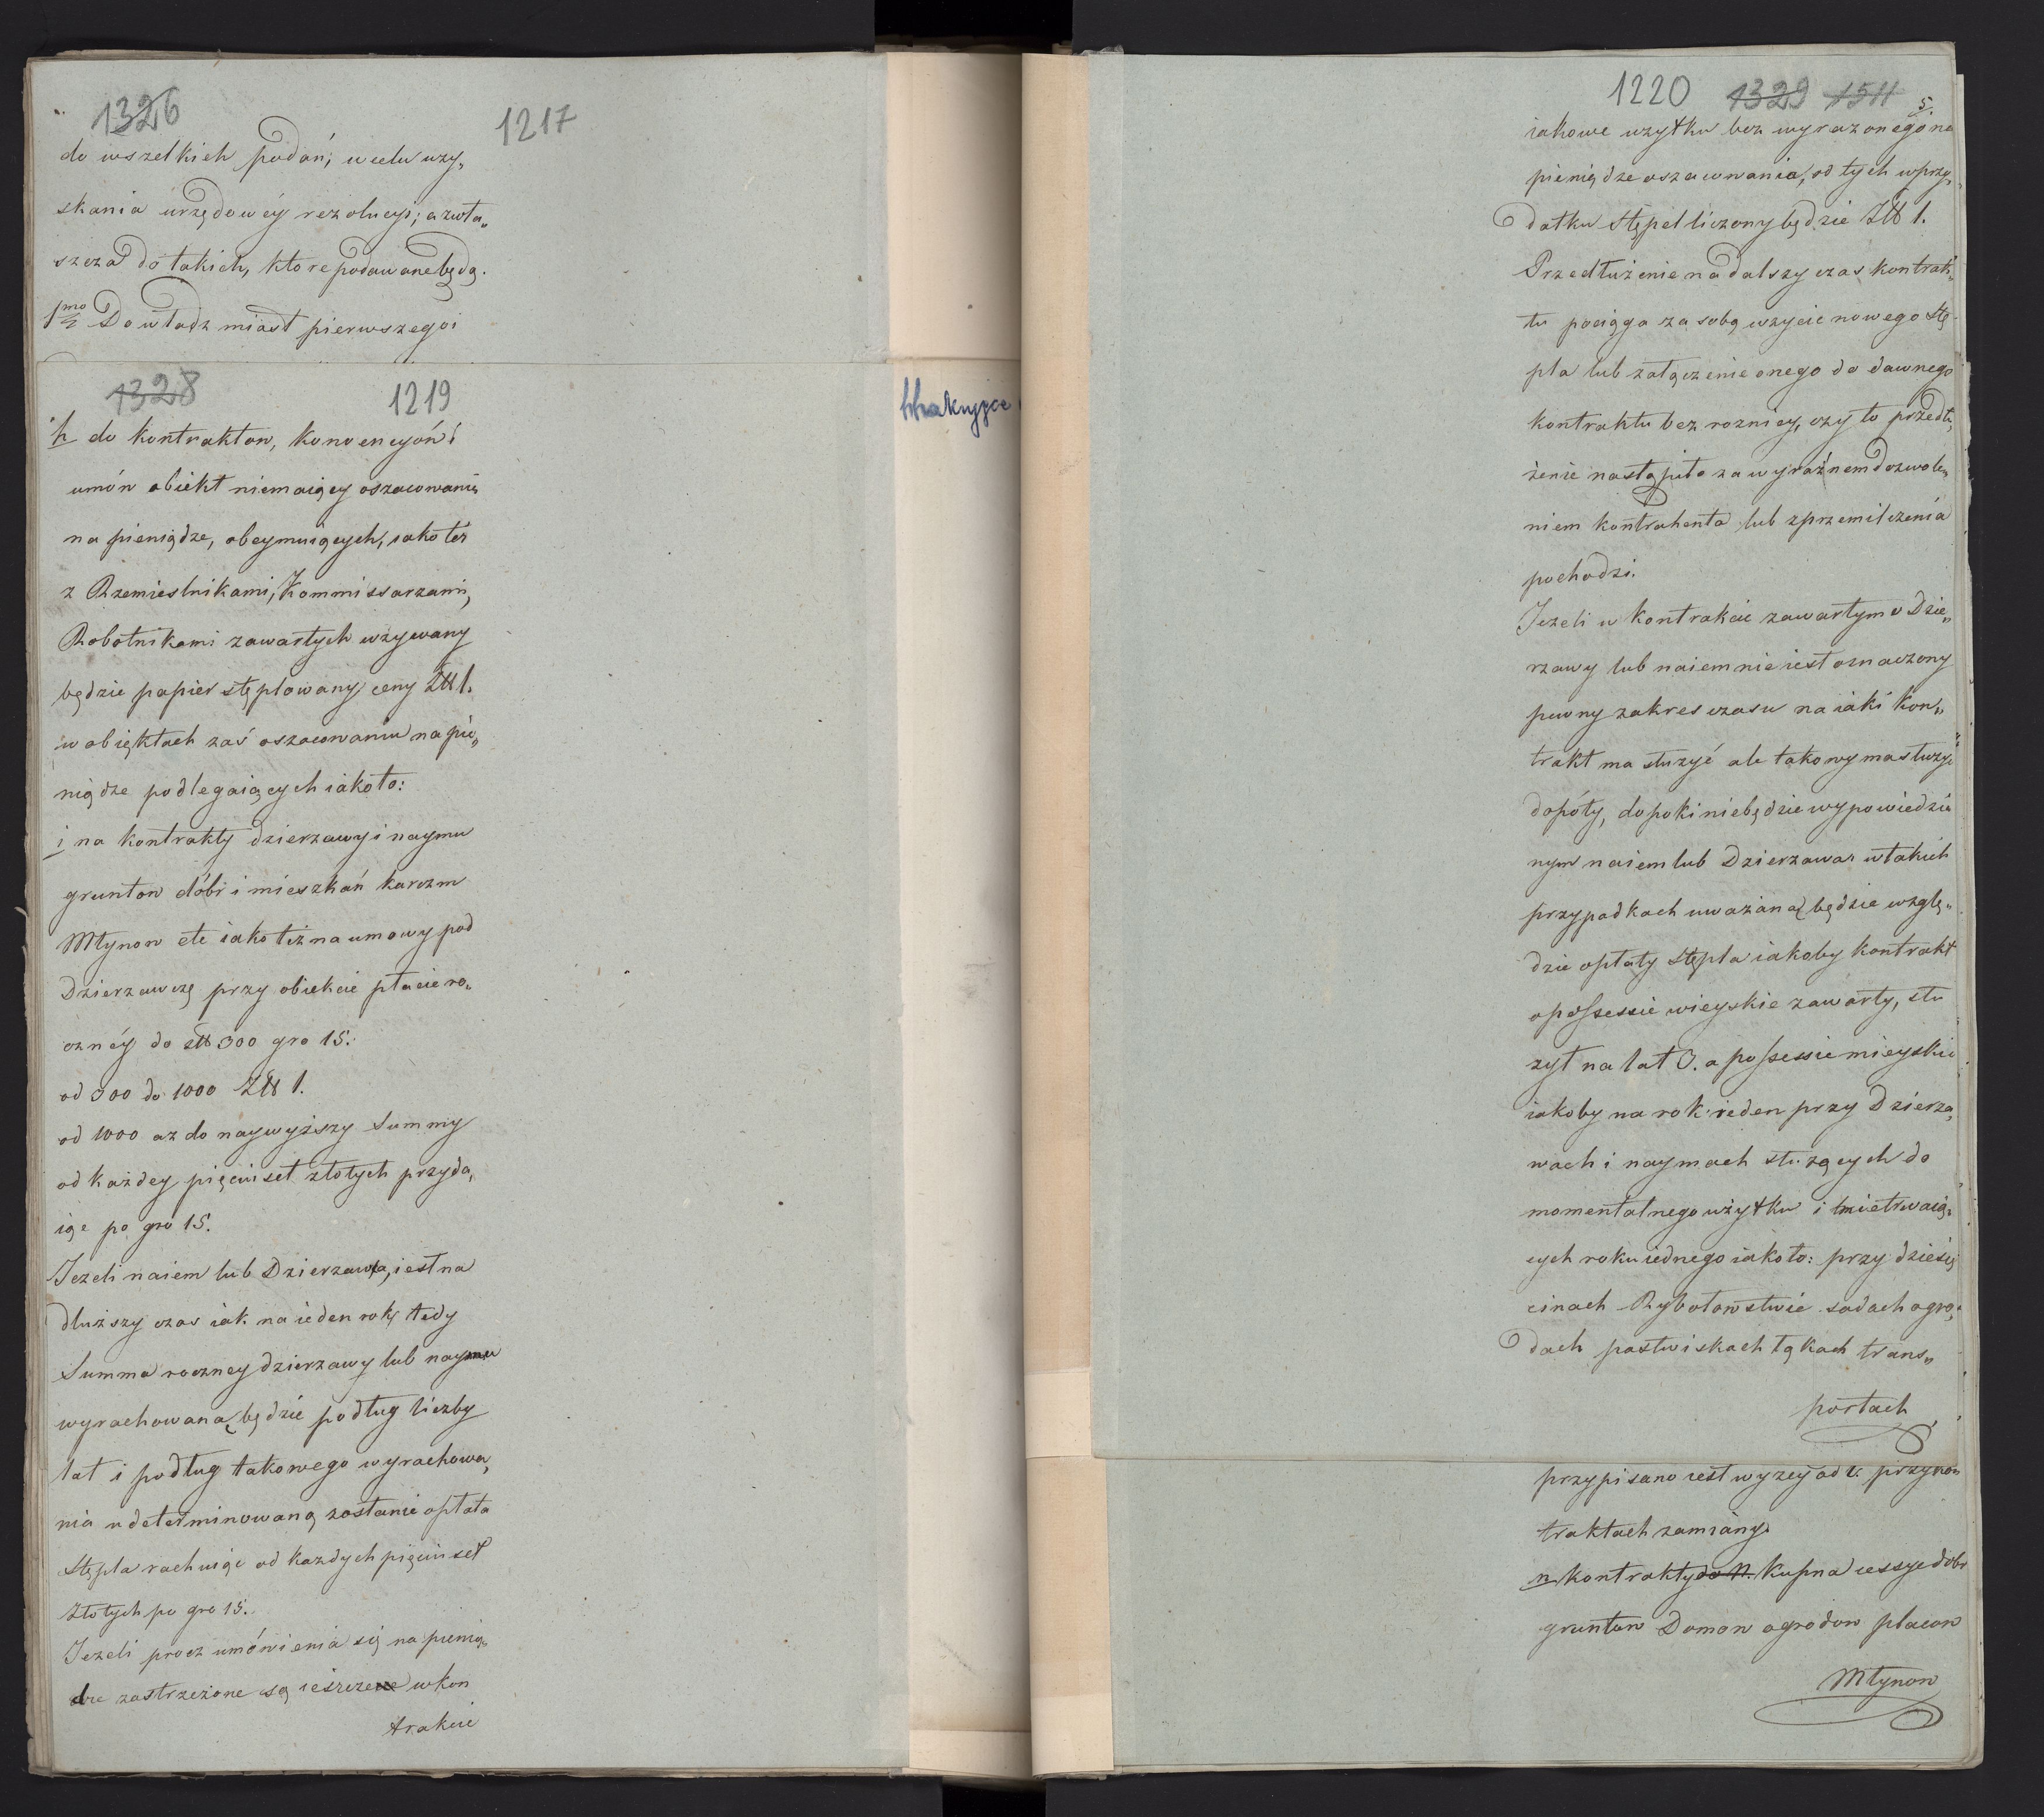 1326 1217
do wszelkich podań, w celu uzy„
skania urzędowéy rezolucyi; a zwła„
szcza do takich, ktore podawane będą.
1mo Do władz miast pierwszego i
1328 1219
h do kontraktow, konwencyón i
umów obiekt niemaiący oszacowania
na pieniądze, obeymuiących, iako też
z Rzemieslnikami, Kommissarzami,
Robotnikami zawartych używany
będzie papier stęplowany ceny Złł 1.
w obiektach zaś oszacowaniu na pie„
niądze podlegaiących iako to:
i na kontrakty dzierzawy i naymu
gruntow dóbr i mieszkań karczm
Młynow etc iako też na umowy pod
Dzierzawczę przy obiekcie płacie ro„
cznéy do złł 300 gro 15.
od 300 do 1000 Złł 1.
od 1000 az do naywyższy Summy
od każdey pięciuset złotych przyda„
iąc po gro 15.
Jezeli naiem lub Dzierzawa, iest na
dłuższy czas iak na ieden rok, tedy
Summa roczney dzierzawy lub naymu
wyrachowaną będzie podług liczby
lat i podług takowego wyrachowa„
nia udeterminowaną zostanie opłata
Stępla rachuiąc od każdych pięciuset
złotych po gro 15.
Jezeli procz umówienia się na pienią„
dze zastrzeżone są ieszcze w kon
trakcie
1220 1329 1511
5.
iakowe uzytku bez wyrazonego na
pieniądze oszacowania, od tych w przy„
datku Stępel liczony będzie Złł 1.
Przedłużenie na dalszy czas kontrak„
tu pociąga za sobą użycie nowego Stę„
pla lub załączenie onego do dawnego
kontraktu bez roznicy, czy to przedłu„
żenie nastąpiło za wyraźnem dozwole„
niem kontrahenta lub z przemilczenia
pochodzi.
Jezeli w kontrakcie zawartym o Dzie„
rzawy lub naiem nie iest oznaczony
pewny zakres czasu na iaki kon„
trakt ma służyć ale takowy ma służyć
dopóty, dopoki niebędzie wypowiedzia
nym naiem lub Dzierzawa w takich
przypadkach uważaną będzie wzglę„
dzie opłaty stępla iakoby kontrakt
o possessie wieyskie zawarty, słu
zył na lat 3. a possessie mieyskie
iakoby na rok ieden przy Dzierza„
wach i naymach służących do
momentalnego użytku i nietrwaią„
cych roku iednego iako to: przy dziesię
cinach Rybołowstwie sadach ogro„
dach pastwiskach łąkach trans„
portach
przypisano iest wyzey ad k. przy kon
traktach zamiany.
n kontrakty do N. kupna cessye dobr
gruntow Domow ogrodow placow
Młynow